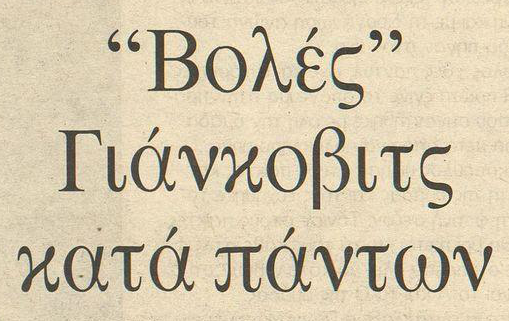 “Βολές”
Γιάνκοβιτς
κατά πάντων